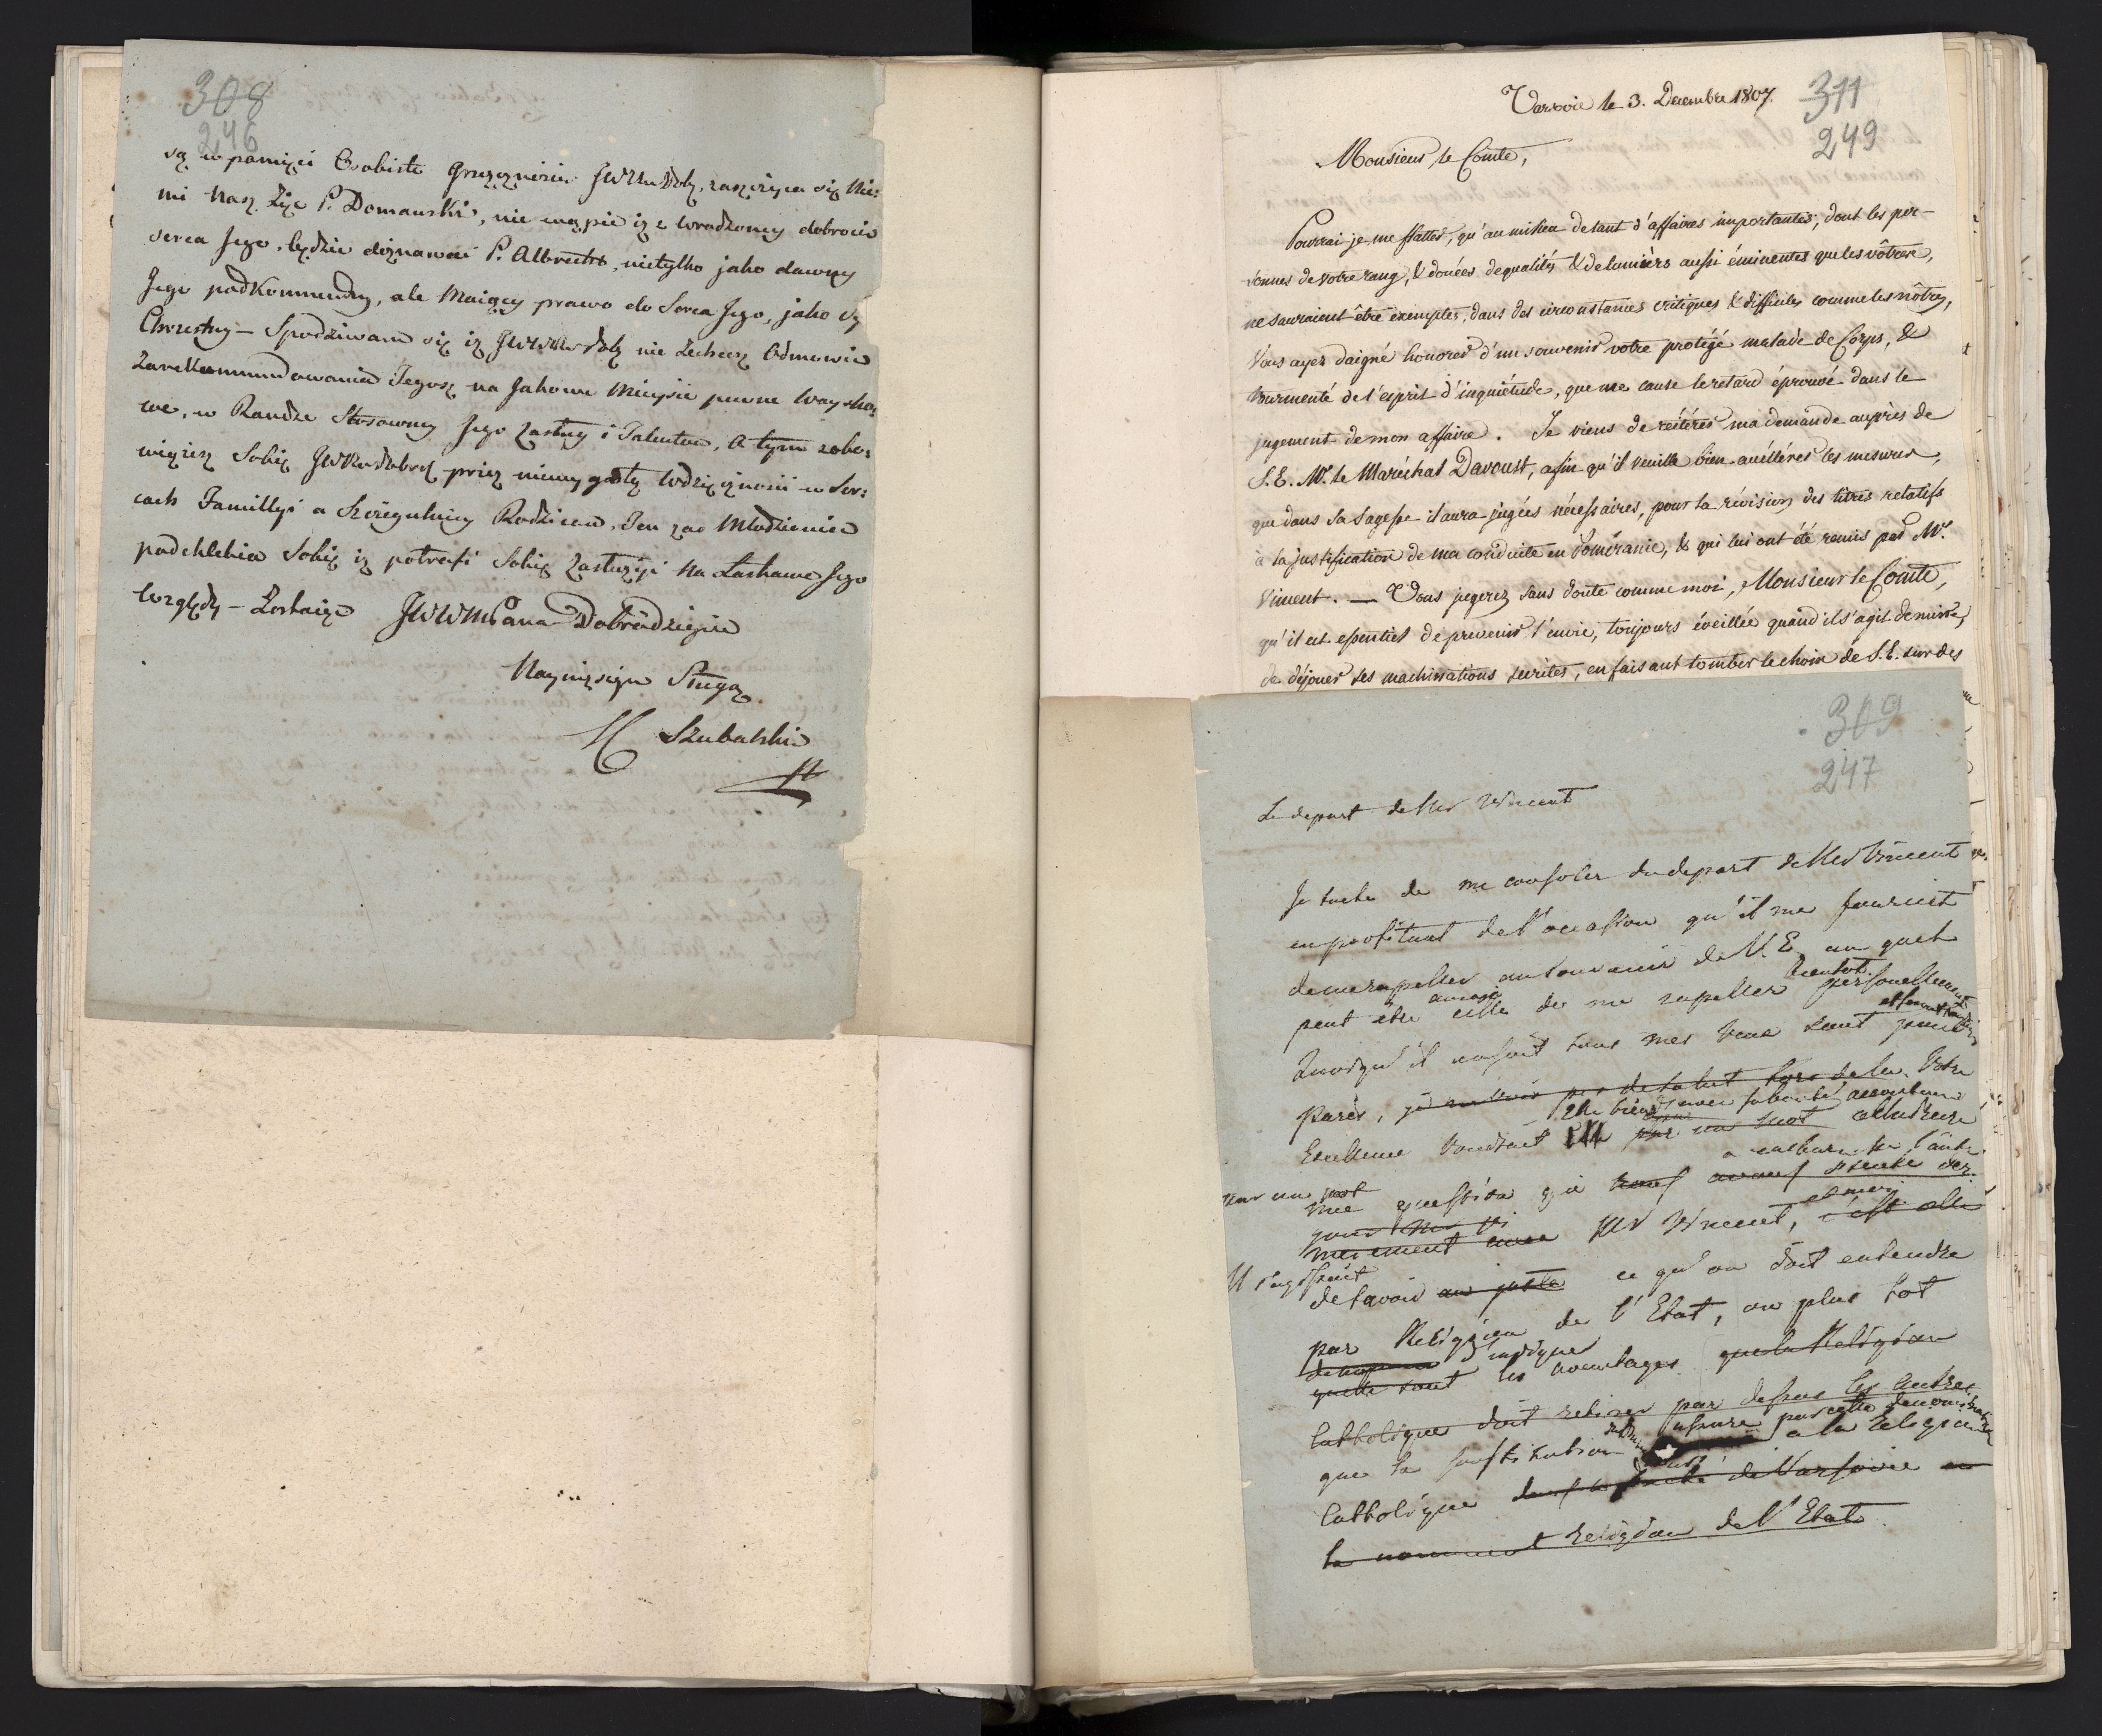 308
246
są w pamięci Osobiste Grzeczności JWWdoby, zaszczyca się Nie:
mi Nasz Zięć P. Domanski, nie wąpię iż z wrodzoney dobroci
serca Jego, będzie doznawać P. Albrecht, nietylko jako dawny
Jego podKommendny, ale Maiący prawo do Serca Jego, jako Oy
Chrzestny — Spodziwam się iż JWWdoby nie Zechcesz Odmowić
Zarekkummendowania Tegosz na Jakowe Mieysce pewne Woysko,
we, w Randze Stosowney Jego Zasług i Talentow, A tym zobo:
wiążesz Sobię JWdobry przez niewygasłę Wdzięcznosci w Ser:
cach Familiyi a Szczegulniey Rodzicow, Ten zas Młodzieniec
podchlebia Sobię iż potrafi Sobię Zasłużyc Na Łaskawe Jego
Względy — Zostaiąc JWWMPana Dobrodzieja
Nayniższym Sługą
Szubalski
Varsovie le 3. Decembre 1807.
311
249
Monsieur le Comte,
Pourrai-je me flatter, qu'au milieu de tant d'affaires importantes, dont les per-
sonnes de votre rang, & douées de qualités & de lumières aussi éminentes que les vôtres,
ne sauraient être exemptes, dans des circonstances critiques & difficiles comme les nôtres,
Vous ayez daigné honorer d'un souvenir votre protégé malade de Corps, &
tourmenté de l'esprit d'inquiétude, que me cause le retard éprouvé dans le
jugement de mon affaire. Je viens de réitérer ma demande auprès de
S. E. Mr. le Maréchal Davoust, afin qu'il veuille bien accélérer les mesures,
que dans sa sagesse il aura jugées nécessaires, pour la révision des titres relatifs
à la justification de ma conduite en Poméranie, & qui lui ont été remis par Mr.
Vincent. — Vous jugerez sans doute comme moi, Monsieur le Comte,
qu'il est essentiel de prevenir l'envie, toujours éveillée quand il s'agit de nuire,
de déjouer ses machinations secrètes, en faisant tomber le choix de S. E. sur des
309
247
Le depart de Mr Vincent
Je tache de me consoler du depart de Mr Vincent
en profitant de l'occasion qu'il me fournit
de me rapeller au souvenir de V. E. en
peut etre celle de me rapeller bientot personellement
Quoiqu'il en soit tous mes voeux sont pour
Paris, de salut hors de la. Votre
Excellence voudrait Elle bien avec sa bonté accoutumée
par un mot
une question que
Mr Vincent, et moi
Il s'agissait
de savoir au juste ce qu'on doit entendre
par Religion de l'Etat, ou plus tot
quels sont les avantages que la Religion
Catholique doit retirer par dessus les autres
que la constitution assure par cette denomination a la religion
Catholique de Varsovie en
la nommant religion de l'Etat.